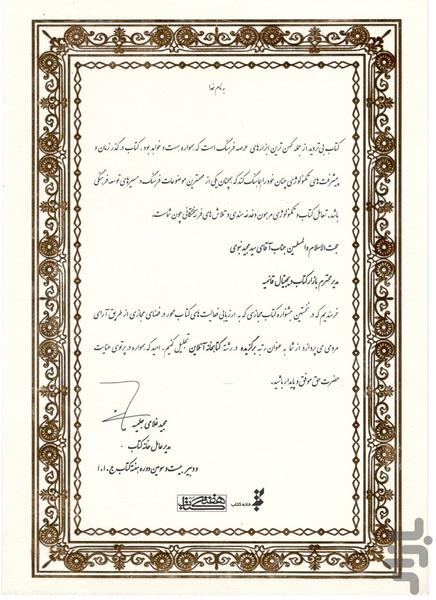 به نام خدا
کتاب بی‌تردید از جمله کهن ترین ابزارهای عرصه فرهنگ است که همواره هست و خواهد بود. کتاب در گذر زمان و
پیشرفت های تکنولوژی چنان خود را هماهنگ کند که همچنان یکی از مهمترین موضوعات فرهنگ و مسیرهای توسعه فرهنگی
باشد. تعامل کتاب و تکنولوژی مرهون دغدغه مندی و تلاش های فرهیختگانی چون شماست.
حجت الاسلام و المسلمین جناب آقای سید مجید نبوی
مدیر محترم بازار کتاب دیجیتال قائمیه
خرسندیم که در نخستین جشنواره کتاب مجازی که به ارزیابی فعالیت های کتاب محور در فضای مجازی از طریق آرای
مردمی می پردازد از شما به عنوان رتبه برگزیده در رشته کتابخانه آنلاین تجلیل کنیم. امید که همواره در پرتوی عنایت
حضرت حق موفق و پایدار باشید.
مجید غلامی جلیسه
مدیر عامل خانه کتاب
و دبیر بیست و سومین دوره هفته کتاب ج.ا.ا
خانه کتاب
هفته کتاب
بازار